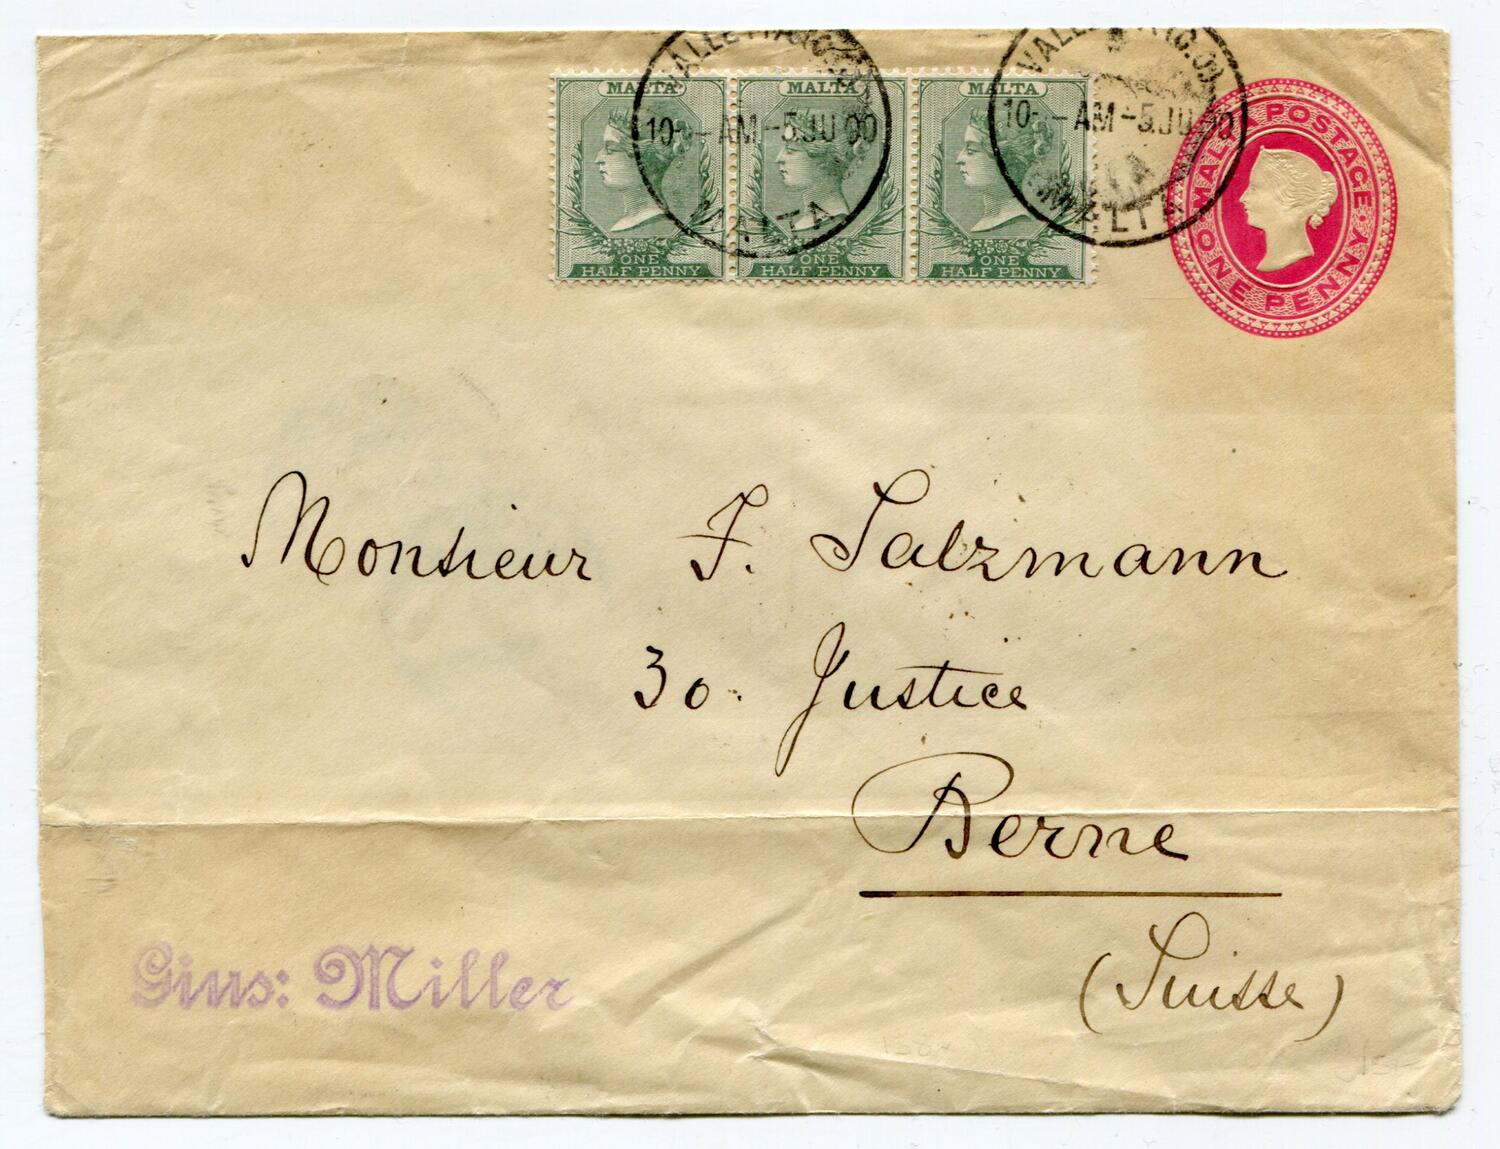 MALTA MALTA MALTA
ONE ONE ONE
HALF PENNY HALF PENNY HALF PENNY
10 - AM - 5 JU 00
MALTA
10 - AM - 5 JU 00
MALTA
MALTA POSTAGE
ONE PENNY
Monsieur F. Salzmann
30. Justice
Berne
(Suisse)
Gius: Miller